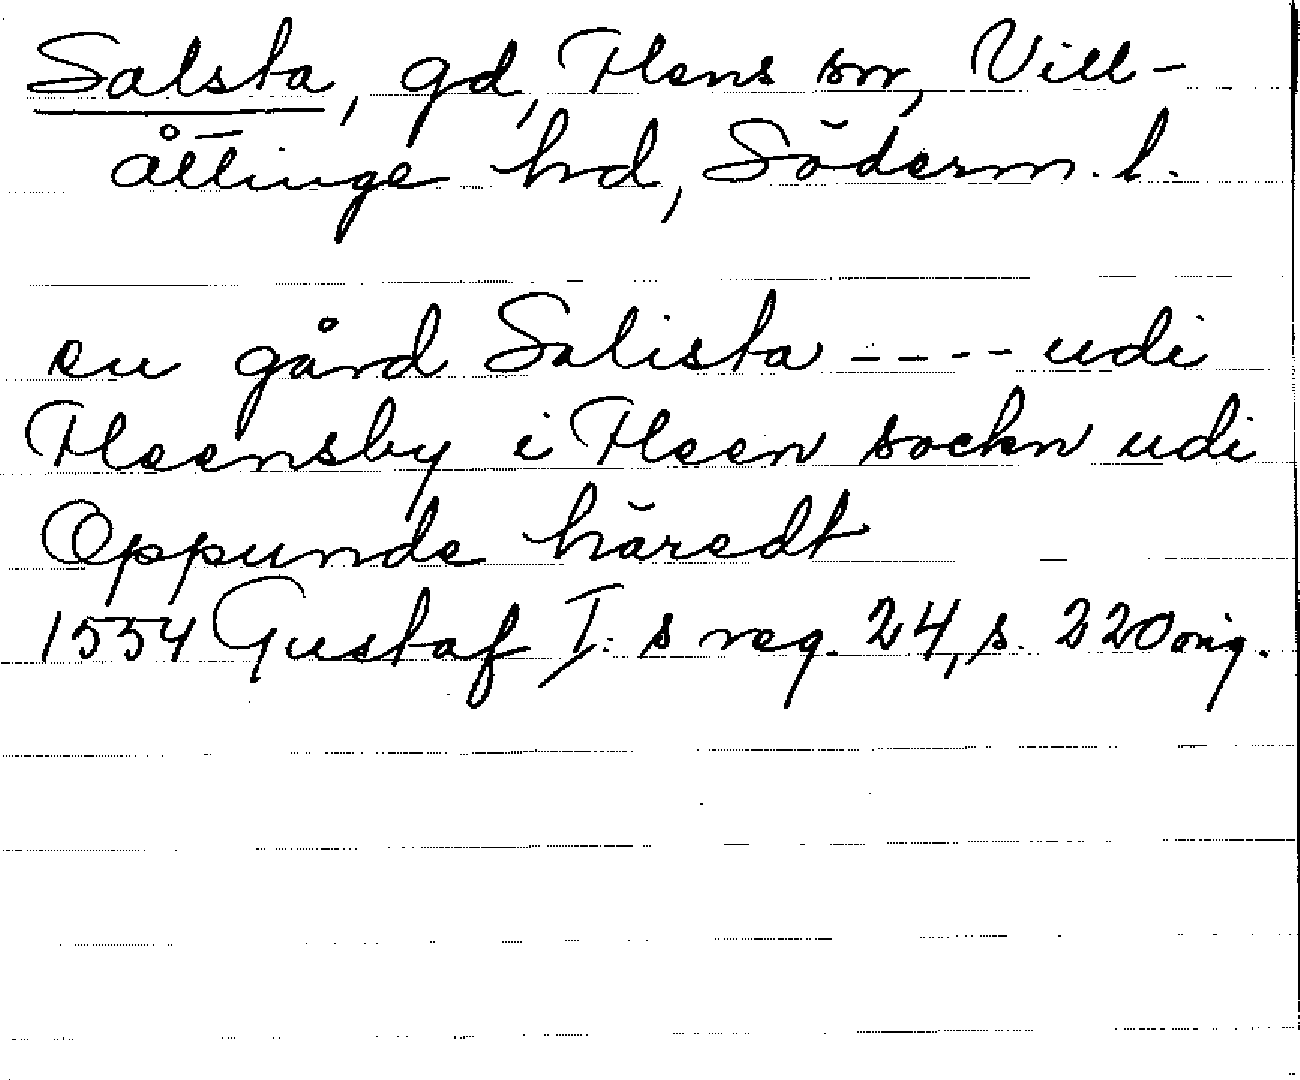 Salsta, gd, Flens sn, Vill-
åttinge hd, Söderm. l.
en gård Salista ---- udi
Fleensby i Fleen sockn udi
Oppunde häredt
1554 Gustaf I:s reg. 24, s. 220 orig.